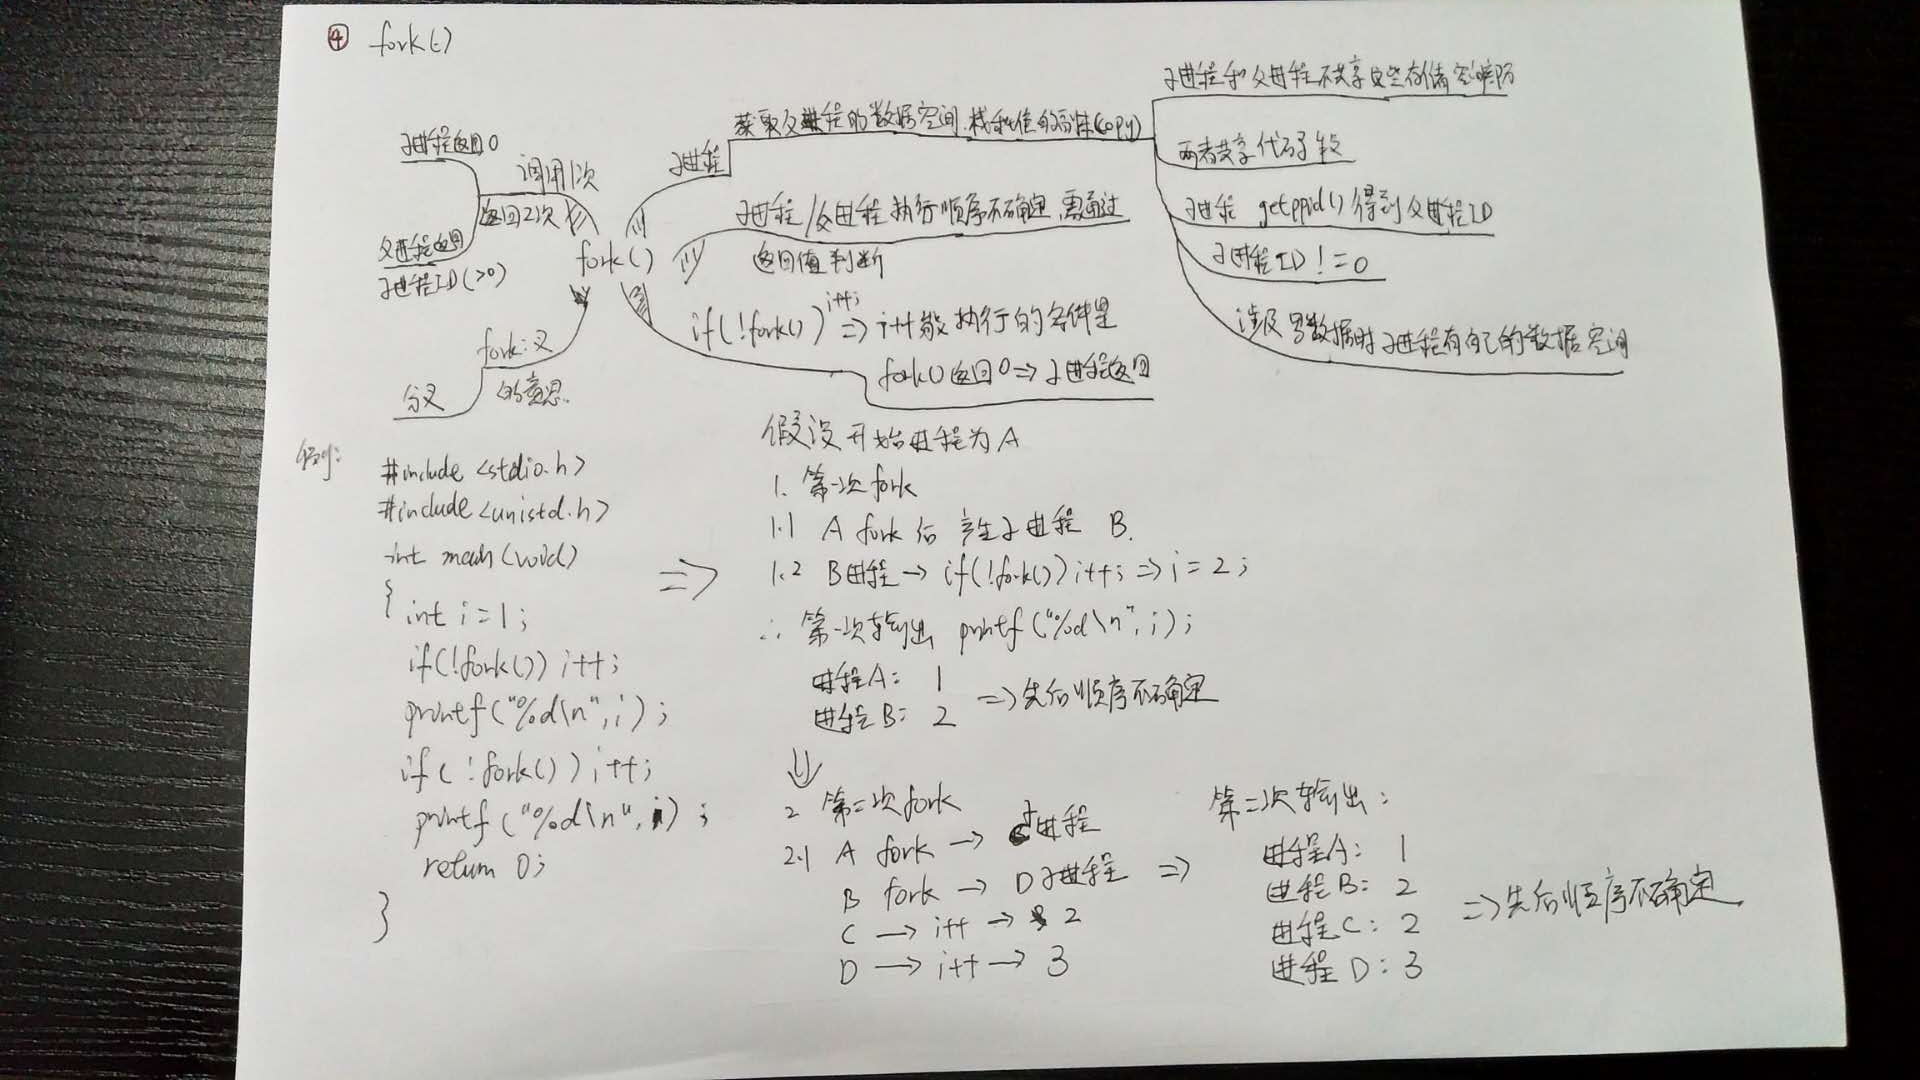 ④ fork()
子进程返回0
调用1次
返回2次
父进程返回
子进程ID(>0)
fork()
fork:叉
的意思.
分叉
子进程
获取父进程的数据空间.栈和堆的副本(copy)
子进程和父进程不共享这些存储空间部分
两者共享代码段
子进程 getppid()得到父进程ID
子进程ID != 0
涉及写数据时子进程有自己的数据空间
子进程/父进程执行顺序不确定,需通过
返回值判断
if(!fork()) i++; => i++能执行的条件是
fork()返回0 => 子进程返回
例:
#include <stdio.h>
#include <unistd.h>
int main(void)
{
int i=1;
if(!fork()) i++;
printf("%d\n",i);
if(!fork()) i++;
printf("%d\n",i);
return 0;
}
=>
假设开始进程为A
1. 第一次fork
1.1 A fork后产生子进程 B.
1.2 B进程→ if(!fork()) i++; => i=2;
∴ 第一次输出 printf("%d\n",i);
进程A: 1
进程B: 2 => 先后顺序不确定
2 第二次fork
2.1 A fork → C子进程
B fork → D子进程 =>
C → i++ → 2
D → i++ → 3
第二次输出:
进程A: 1
进程B: 2
进程C: 2
进程D: 3
=> 先后顺序不确定